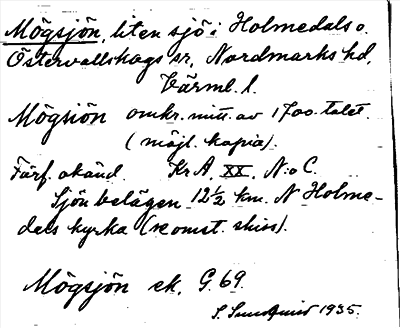 Mögsjön, liten sjö i Holmedals o.
Östervallskogs sr, Nordmarks hd,
Värml. l.
Mögsiön omkr. mitt. av 1700-talet.
(möjl. kopia).
Förf. okänd. KrA, XX, N:o C.
Sjön belägen 12½ km. N Holme-
dals kyrka (se omst. skiss).
Mögsjön ek. G. 69.
S. Sundquist 1935.